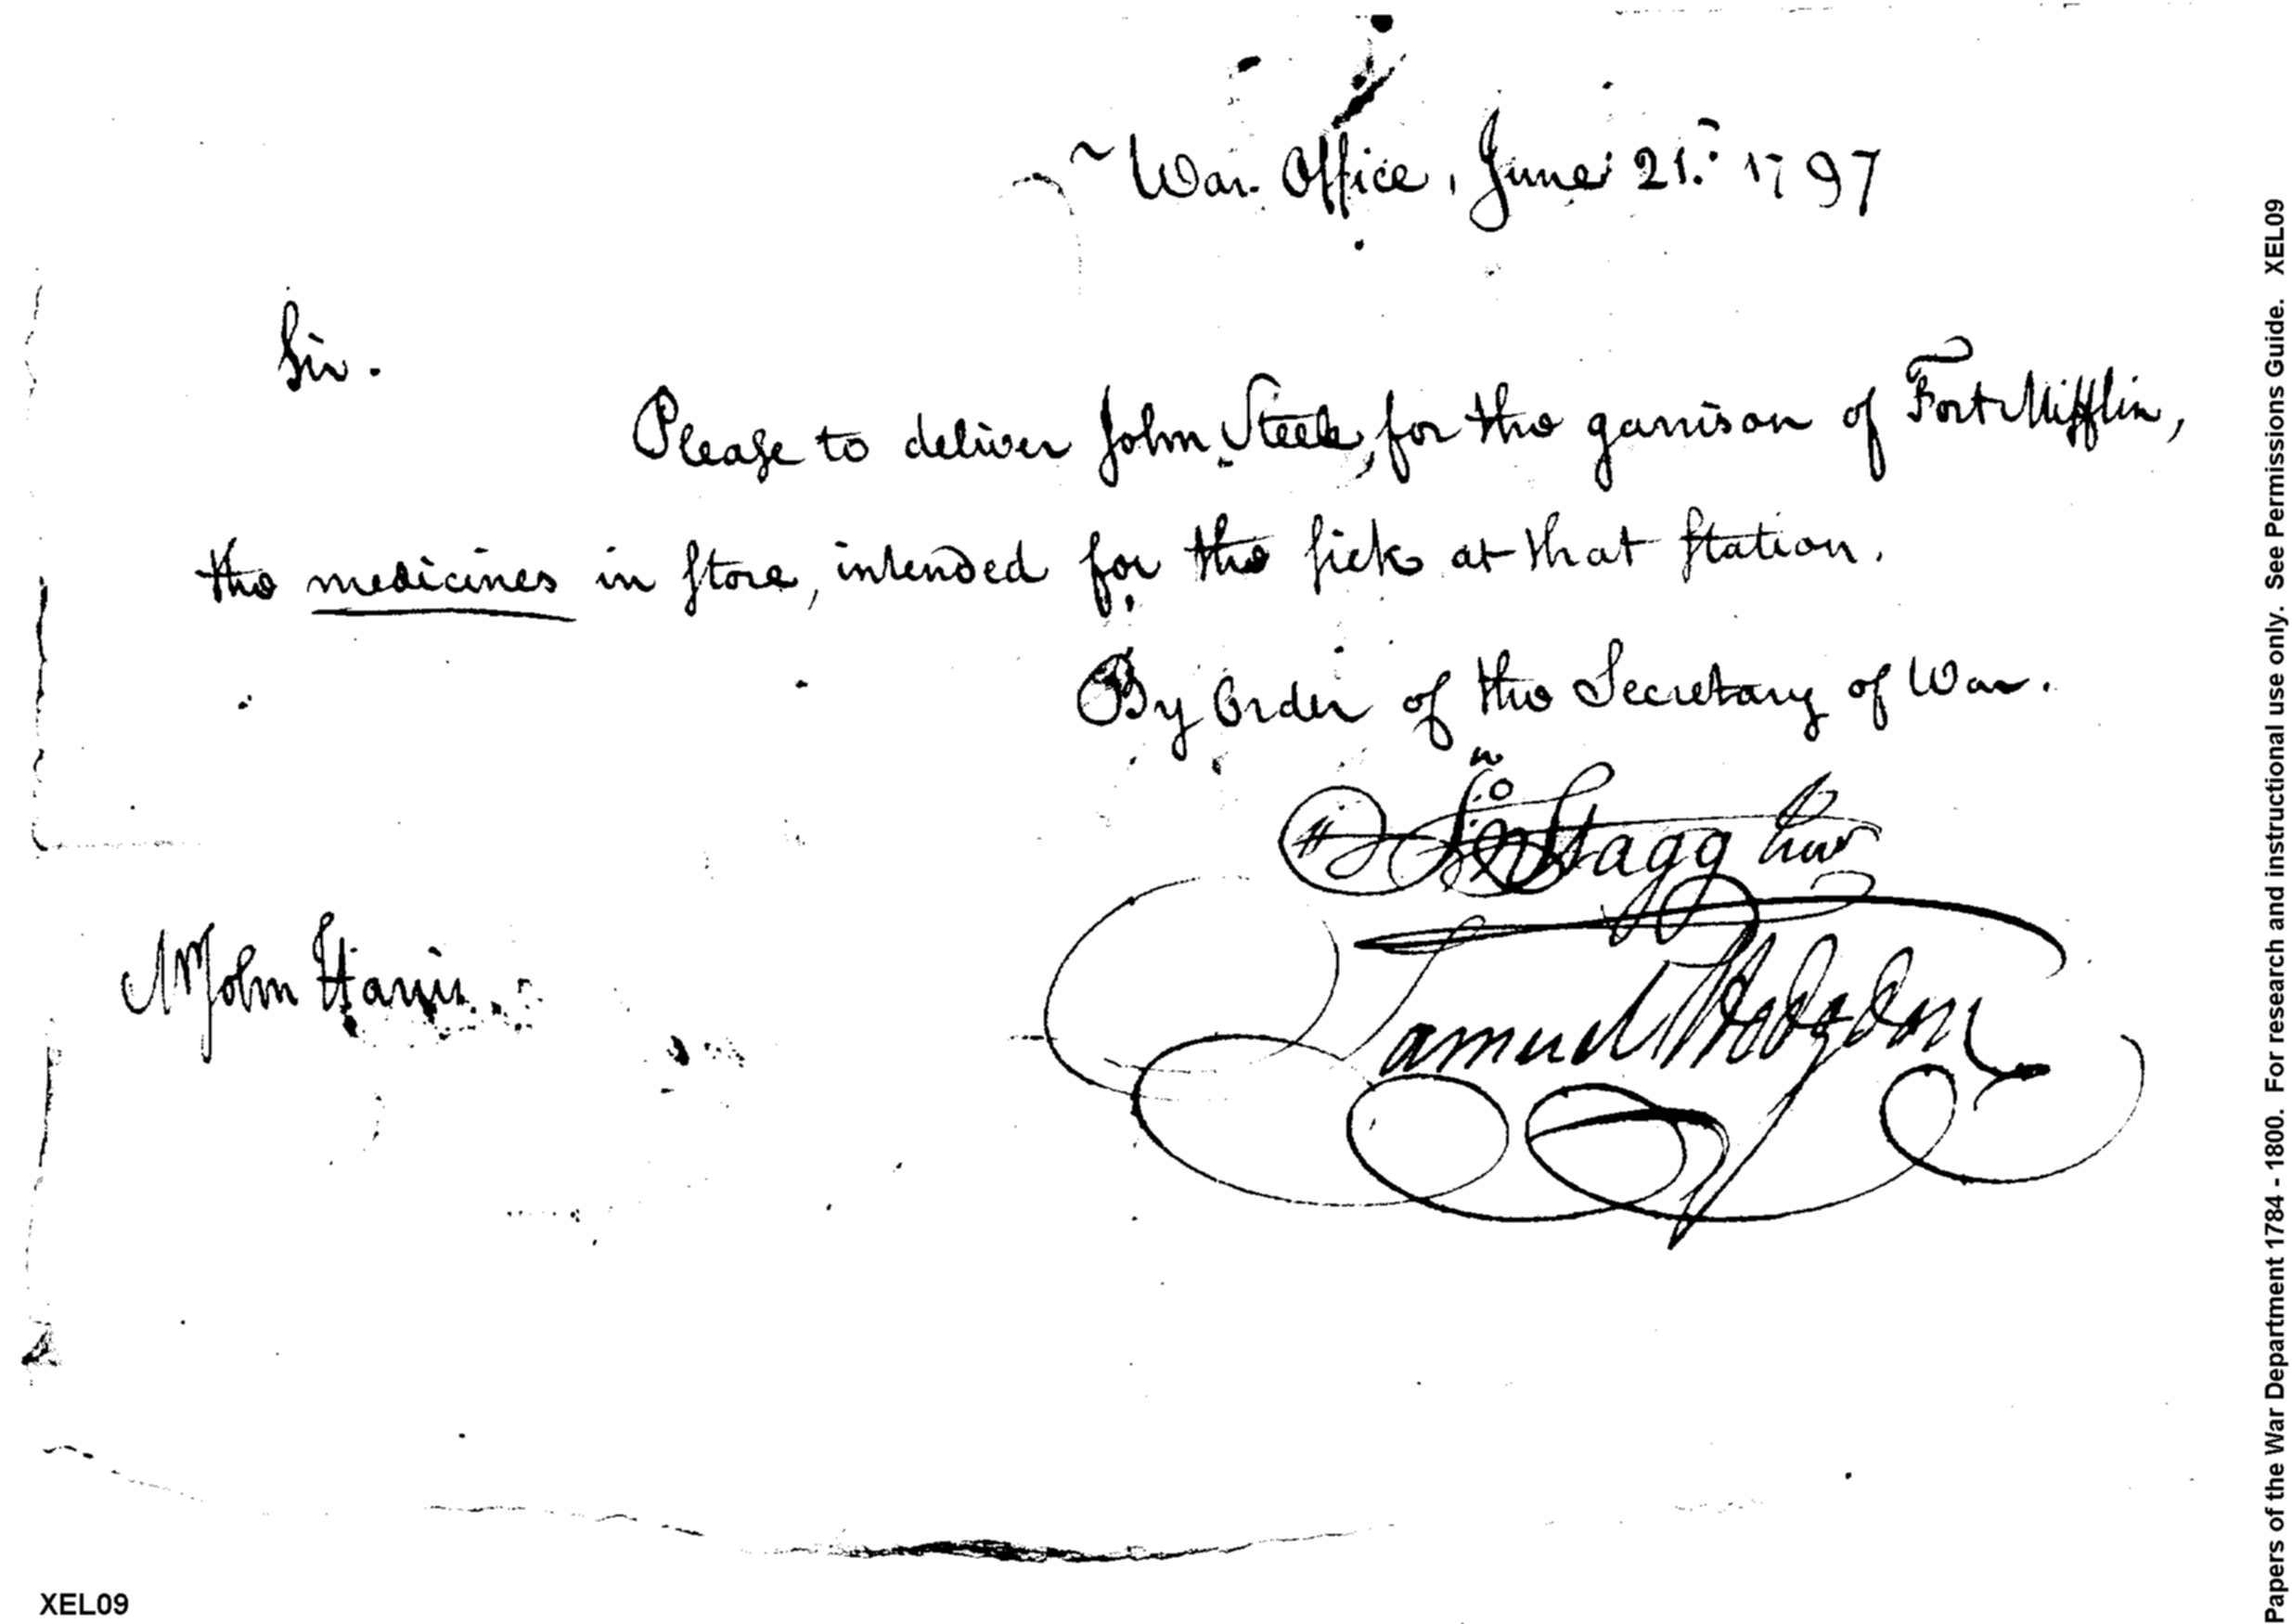 War Office, June 21st 1797
Sir.
Please to deliver John Steele, for the garrison of Fort Mifflin,
the medicines in Store, intended for the sick at that Station.
By Order of the Secretary of War.
Jno Stagg Junr
Mr John Harris.
Samuel Hodgdon
XEL09
Papers of the War Department 1784 - 1800. For research and instructional use only. See Permissions Guide. XEL09